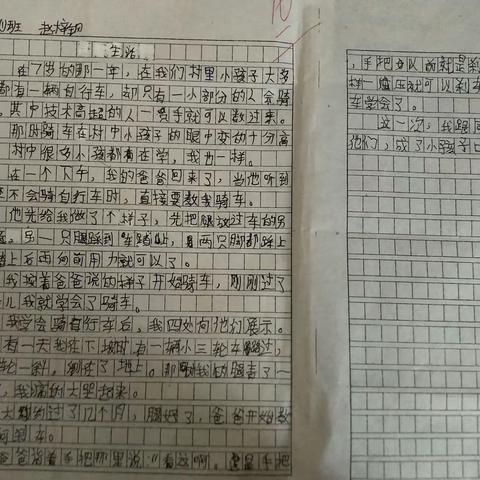 班 赵梓钥
生活
在7岁的那一年，在我们村里小孩子大多
都有一辆自行车，却只有一小部分的人会骑
。其中技术高超的人一只手就可以数过来。
那时骑车在村中小孩子的眼中变的十分高
村中很多小孩都在学，我也一样。
在一个下午，我的爸爸回来了，当他听到
不会骑自行车时，直接要教我骑车。
他先给我做了个样子，先把腿放过车的另
。另一只脚踩到车踏板，等两只脚都踩上
踏上后再向前用力就可以了。
我按着爸爸说的样子开始骑车，刚刚过了
儿我就学会了骑车。
我学会骑自行车后，我四处向他们展示。
有一天我在下坡时有一辆小三轮车路过，
轮一斜，倒在了地上。那时我的腿青了一
，我痛的大哭起来。
大概约过了几个月，腿好了，爸爸开始教
刹车。
爸爸指着手把那里说："看这啊。这是手把
，手把的以前就是刹
样一压就可以刹车
车学会了。
这一次，我跟同
他们，成了小孩子口
10